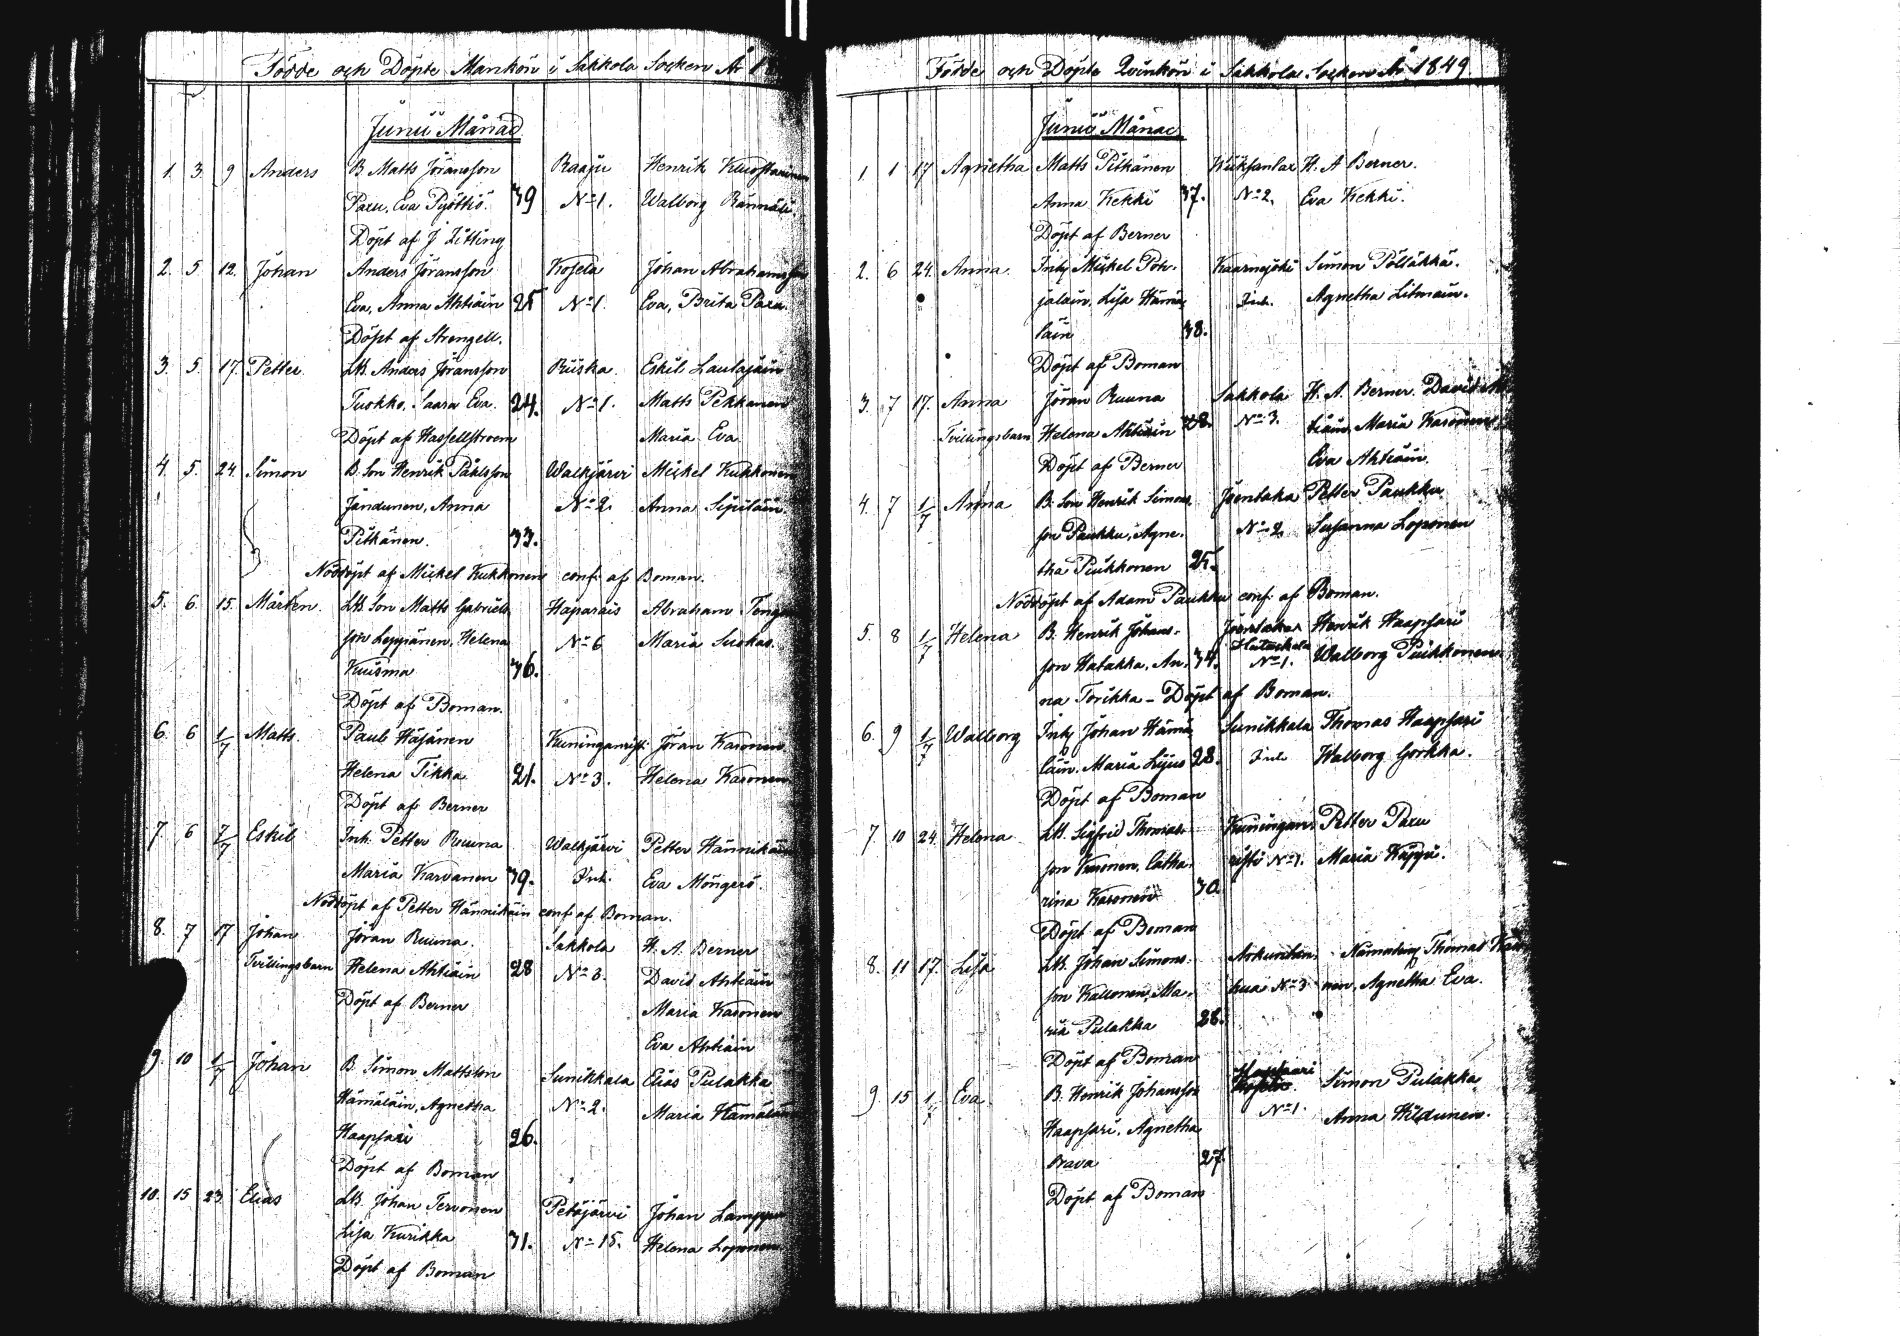 Födde och Döpte Mankön i Sakkola Socken År
Junii Månad
1. 3. 9 Anders B. Matts Jöransson Raaju Henrik
Paxu, Eva Pyöttiö. 39 N:o 1. Walborg
Döpt af J Zitting
2. 5 12. Johan Anders Jöransson Kosela Johan Abrahamsson
Eva, Anna Ahtiain 25 N:o 1. Eva, Brita Paxu.
Döpt af Strengell.
3. 5. 17. Petter LB. Anders Jöransson Riiska. Eskil Lautajäin
Tuokko, Saara Eva. 24. N:o 1. Matts Pekkanen
Döpt af Hassellstroem Maria Eva
4. 5. 24. Simon B. Son Henrik Påhlsson Walkjärvi Mickel Kukkonen
Jändunen, Anna N:o 2. Anna Sipiläin.
Pitkänen. 33.
Nöddöpt af Mickel Kukkonen conf. af Boman.
5. 6. 15. Mårten. LB. Son Matts Gabriels Haparais Abraham
son Leppänen, Helena N:o 6 Maria Suokas.
Kuisma 36.
Döpt af Boman.
6. 6 1/7 Matts. Paul Häjänen Kuninganristi Jöran Karonen
Helena Tikka 21. N:o 3. Helena Karonen
Döpt af Berner
7. 6 7/7 Eskil Inh. Petter Ruuna Walkjärvi Petter Hännikäin
Maria Karvanen 39. Inh. Eva Möngerö.
Nöddöpt af Petter Hännikäin conf af Boman.
8. 7 17 Johan Jöran Ruuna. Sakkola H. A. Berner
Tvillingsbarn Helena Ahtiain 28 N:o 3. David Ahtiain
Döpt af Berner Maria Karonen
Eva Ahtiain
9. 10 1/7 Johan B. Simon Mattsson Sunikkala Elias Pulakka
Hämäläin, Agnetha N:o 2. Maria Hämäläin
Haapsari 26.
Döpt af Boman
10. 15 23. Elias LB. Johan Tervonen Petäjärvi Johan Lamppu
Lisa Kurikka 31. N:o 15. Helena Loponen
Döpt af Boman
Födde och Döpte Qvinkön i Sakkola Socken År 1849.
Junii Månad
1 1 17 Agnetha Matts Pitkänen Wiiksanlax H. A Berner.
Anna Kekki 37. N:o 2. Eva Kekki.
Döpt af Berner
2. 6 24. Anna Inh. Mickel Poh- Kaarnajoki Simon Pölläkkä.
jalain, Lisa Hämä- Inh. Agnetha Litmain.
läin 38.
Döpt af Boman
3. 7 17. Anna Jöran Ruuna Sakkola H. A. Berner. David Ah
Tvillingsbarn Helena Ahtiain 28. N:o 3. tiain, Maria Karonen
Döpt af Berner Eva Ahtiain.
4. 7 1/7 Anna B. Son Henrik Simons Joentaka Petter Paukku
son Paukku, Agne- N:o 2 Susanna Loponen
tha Puikkonen 25.
Nöddöpt af Adam Paukku conf. af Boman.
5. 8 1/7 Helena B. Henrik Johans- Joentaka Henrik Haapsari
son Hatakka, An- 34. N:o 1. Walborg Puikkonen
na Torikka – Döpt af Boman.
6. 9 1/7 Walborg Inh. Johan Hämä Sunikkala Thomas Haapsari
läin. Maria Lijus 28. Inh. Walborg Gorkka.
Döpt af Boman
7 10 24. Helena LB. Sigfrid Thomas- Kuningan- Petter Paxu
son Kuronen, Catha- risti N:o 1. Maria Käppi.
rina Karonen 30.
Döpt af Boman
8. 11 17. Lisa LB. Johan Simons- Thomas
son Kallonen, Ma- N:o 3 nen, Agnetha Eva.
ria Pulakka 28.
Döpt af Boman
9 15 1/7 Eva. B. Henrik Johansson Haapsari Simon Pulakka
Haapsari, Agnetha N:o 1. Anna Hildunen.
Prava 27.
Döpt af Boman